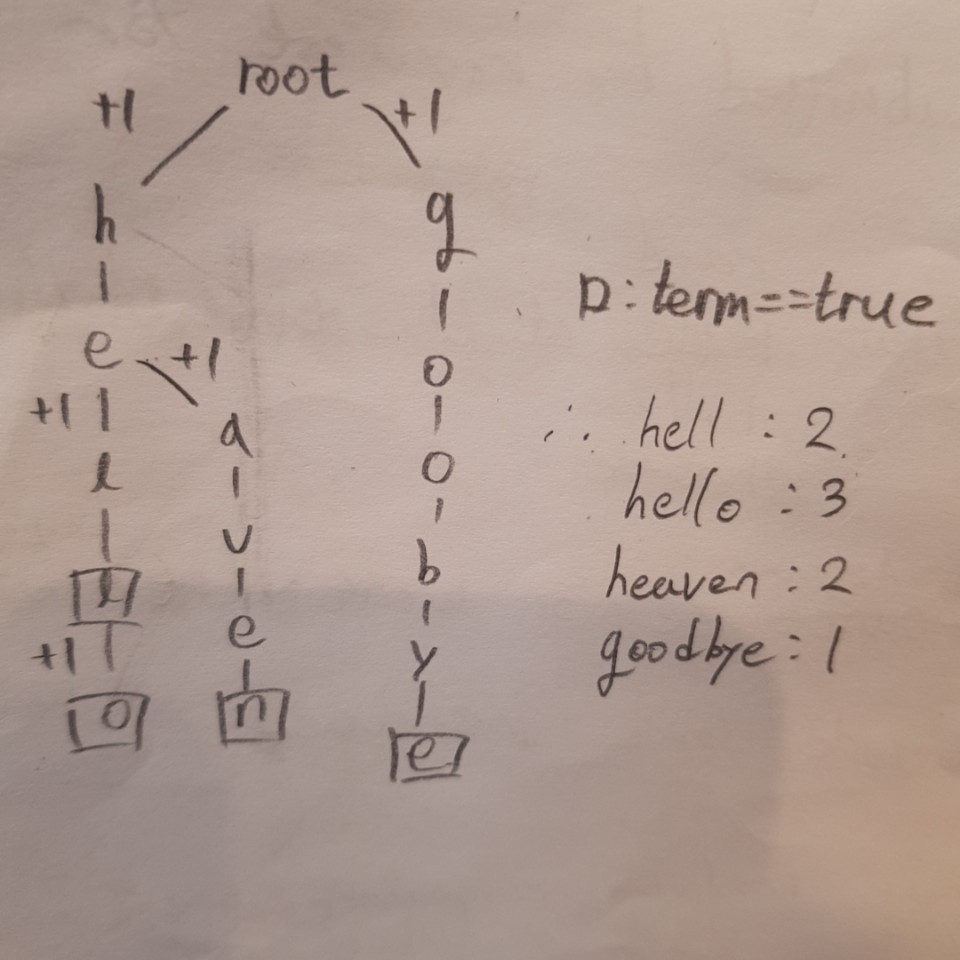 root
+1
+1
h
g
e
+1
o
+1
l
a
o
l
v
b
+1
e
y
o
n
e
□: term==true
∴ hell : 2
hello : 3
heaven : 2
goodbye : 1